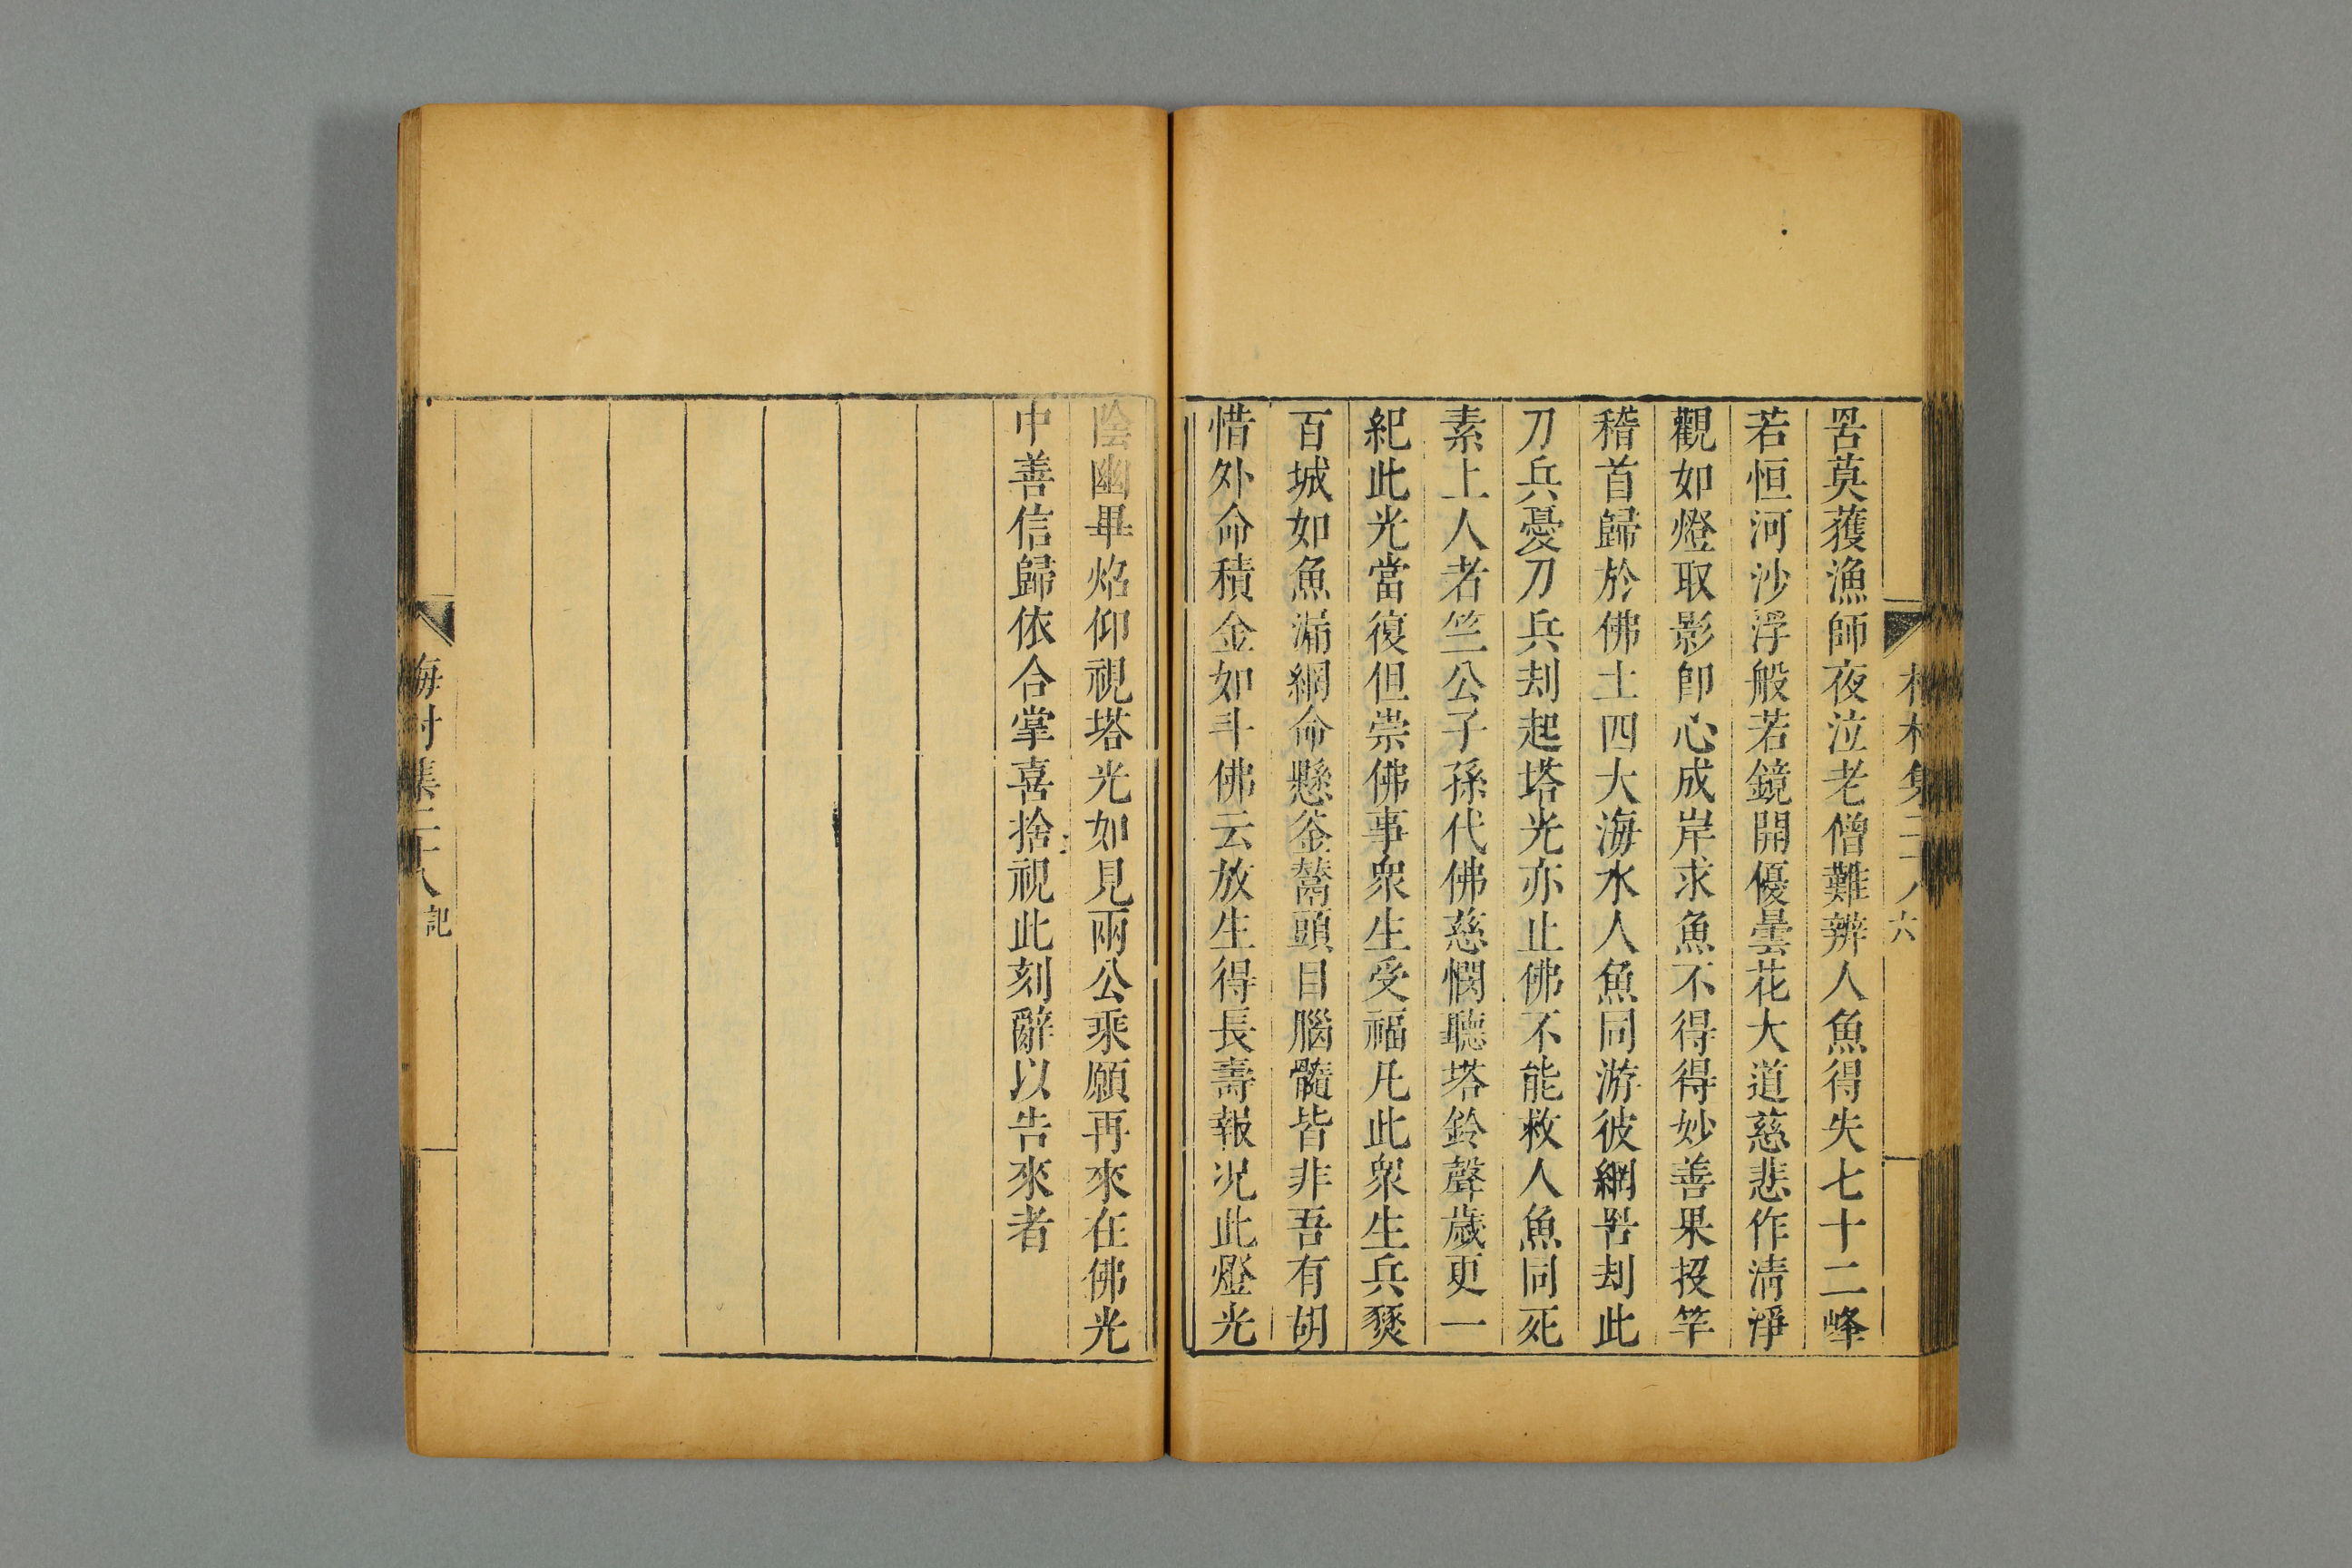 罟莫獲漁師夜泣老僧難辨人魚得失七十二峰
若恒河沙浮般若鏡開優曇花大道慈悲作清淨
觀如燈取影卽心成岸求魚不得得妙善果投竿
稽首歸於佛土四大海水人魚同游彼網罟刦此
刀兵憂刀兵刦起塔光亦止佛不能救人魚同死
素上人者竺公子孫代佛慈憫聽塔鈴聲歲更一
紀此光當復但崇佛事衆生受福凡此衆生兵燹
百城如魚漏網命懸釜鬵頭目腦髓皆非吾有胡
惜外命積金如斗佛云放生得長壽報况此燈光
陰幽畢焰仰視塔光如見兩公乘願再來在佛光
中善信歸依合掌喜捨視此刻辭以告來者
六
記